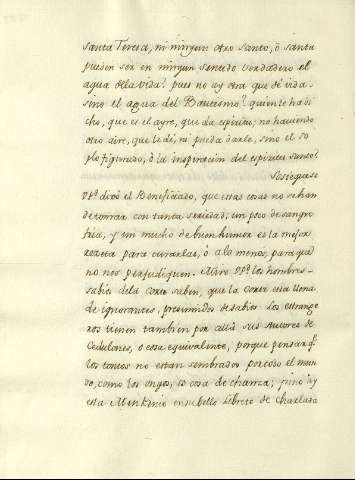 Santa Teresa, ni ningun otro santo, ô santa
pueden ser en ningun sentido verdadero el
agua de la vida? pues no ay otra que dè vida
sino el agua del Bautismo? quien le ha di
cho, que es el ayre, que da espiritu, no haviendo
otro aire, que le dè, ni pueda darle, sino el so
plo figurado, ô la inspiracion del espiritu santo?
Sosieguese
Vm. dixo el Beneficiado, que essas cosas no se han
de tomar con tanta seriedad; un poco de sangre
fria, y un mucho de buen humor es la mejor
rezeta para curarlas, ò a lo menos, para que
no nos perjudiquen. Mire Vm. los hombres
sabios de la Corte saben, que la Corte està llena
de ignorantes, presumidos de sabios. Los estrange
ros tienen tambien por allà sus Autores de
Cedulones, o cosa equivalente, porque pensar q.
los tontos no estan sembrados por todo el mun
do, como los ongos, es cosa de chanza; pues ay
esta Menkenio en su bello librete de Charlata